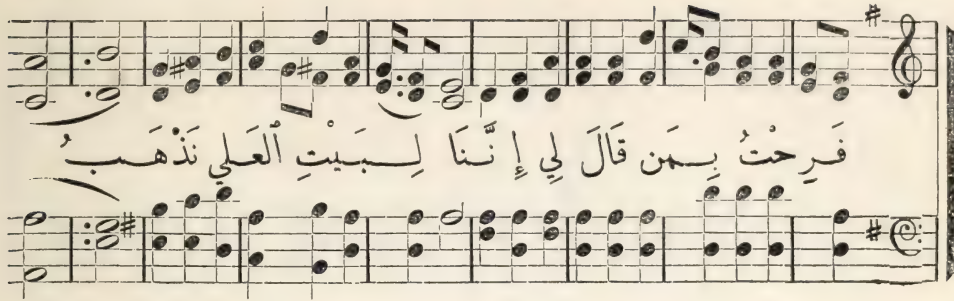 فَرِحْتُ بِـمَن قَالَ لِي إِ نَّـنَا لِـبَيْتِ ٱلعَلي نَذْهَـبُ